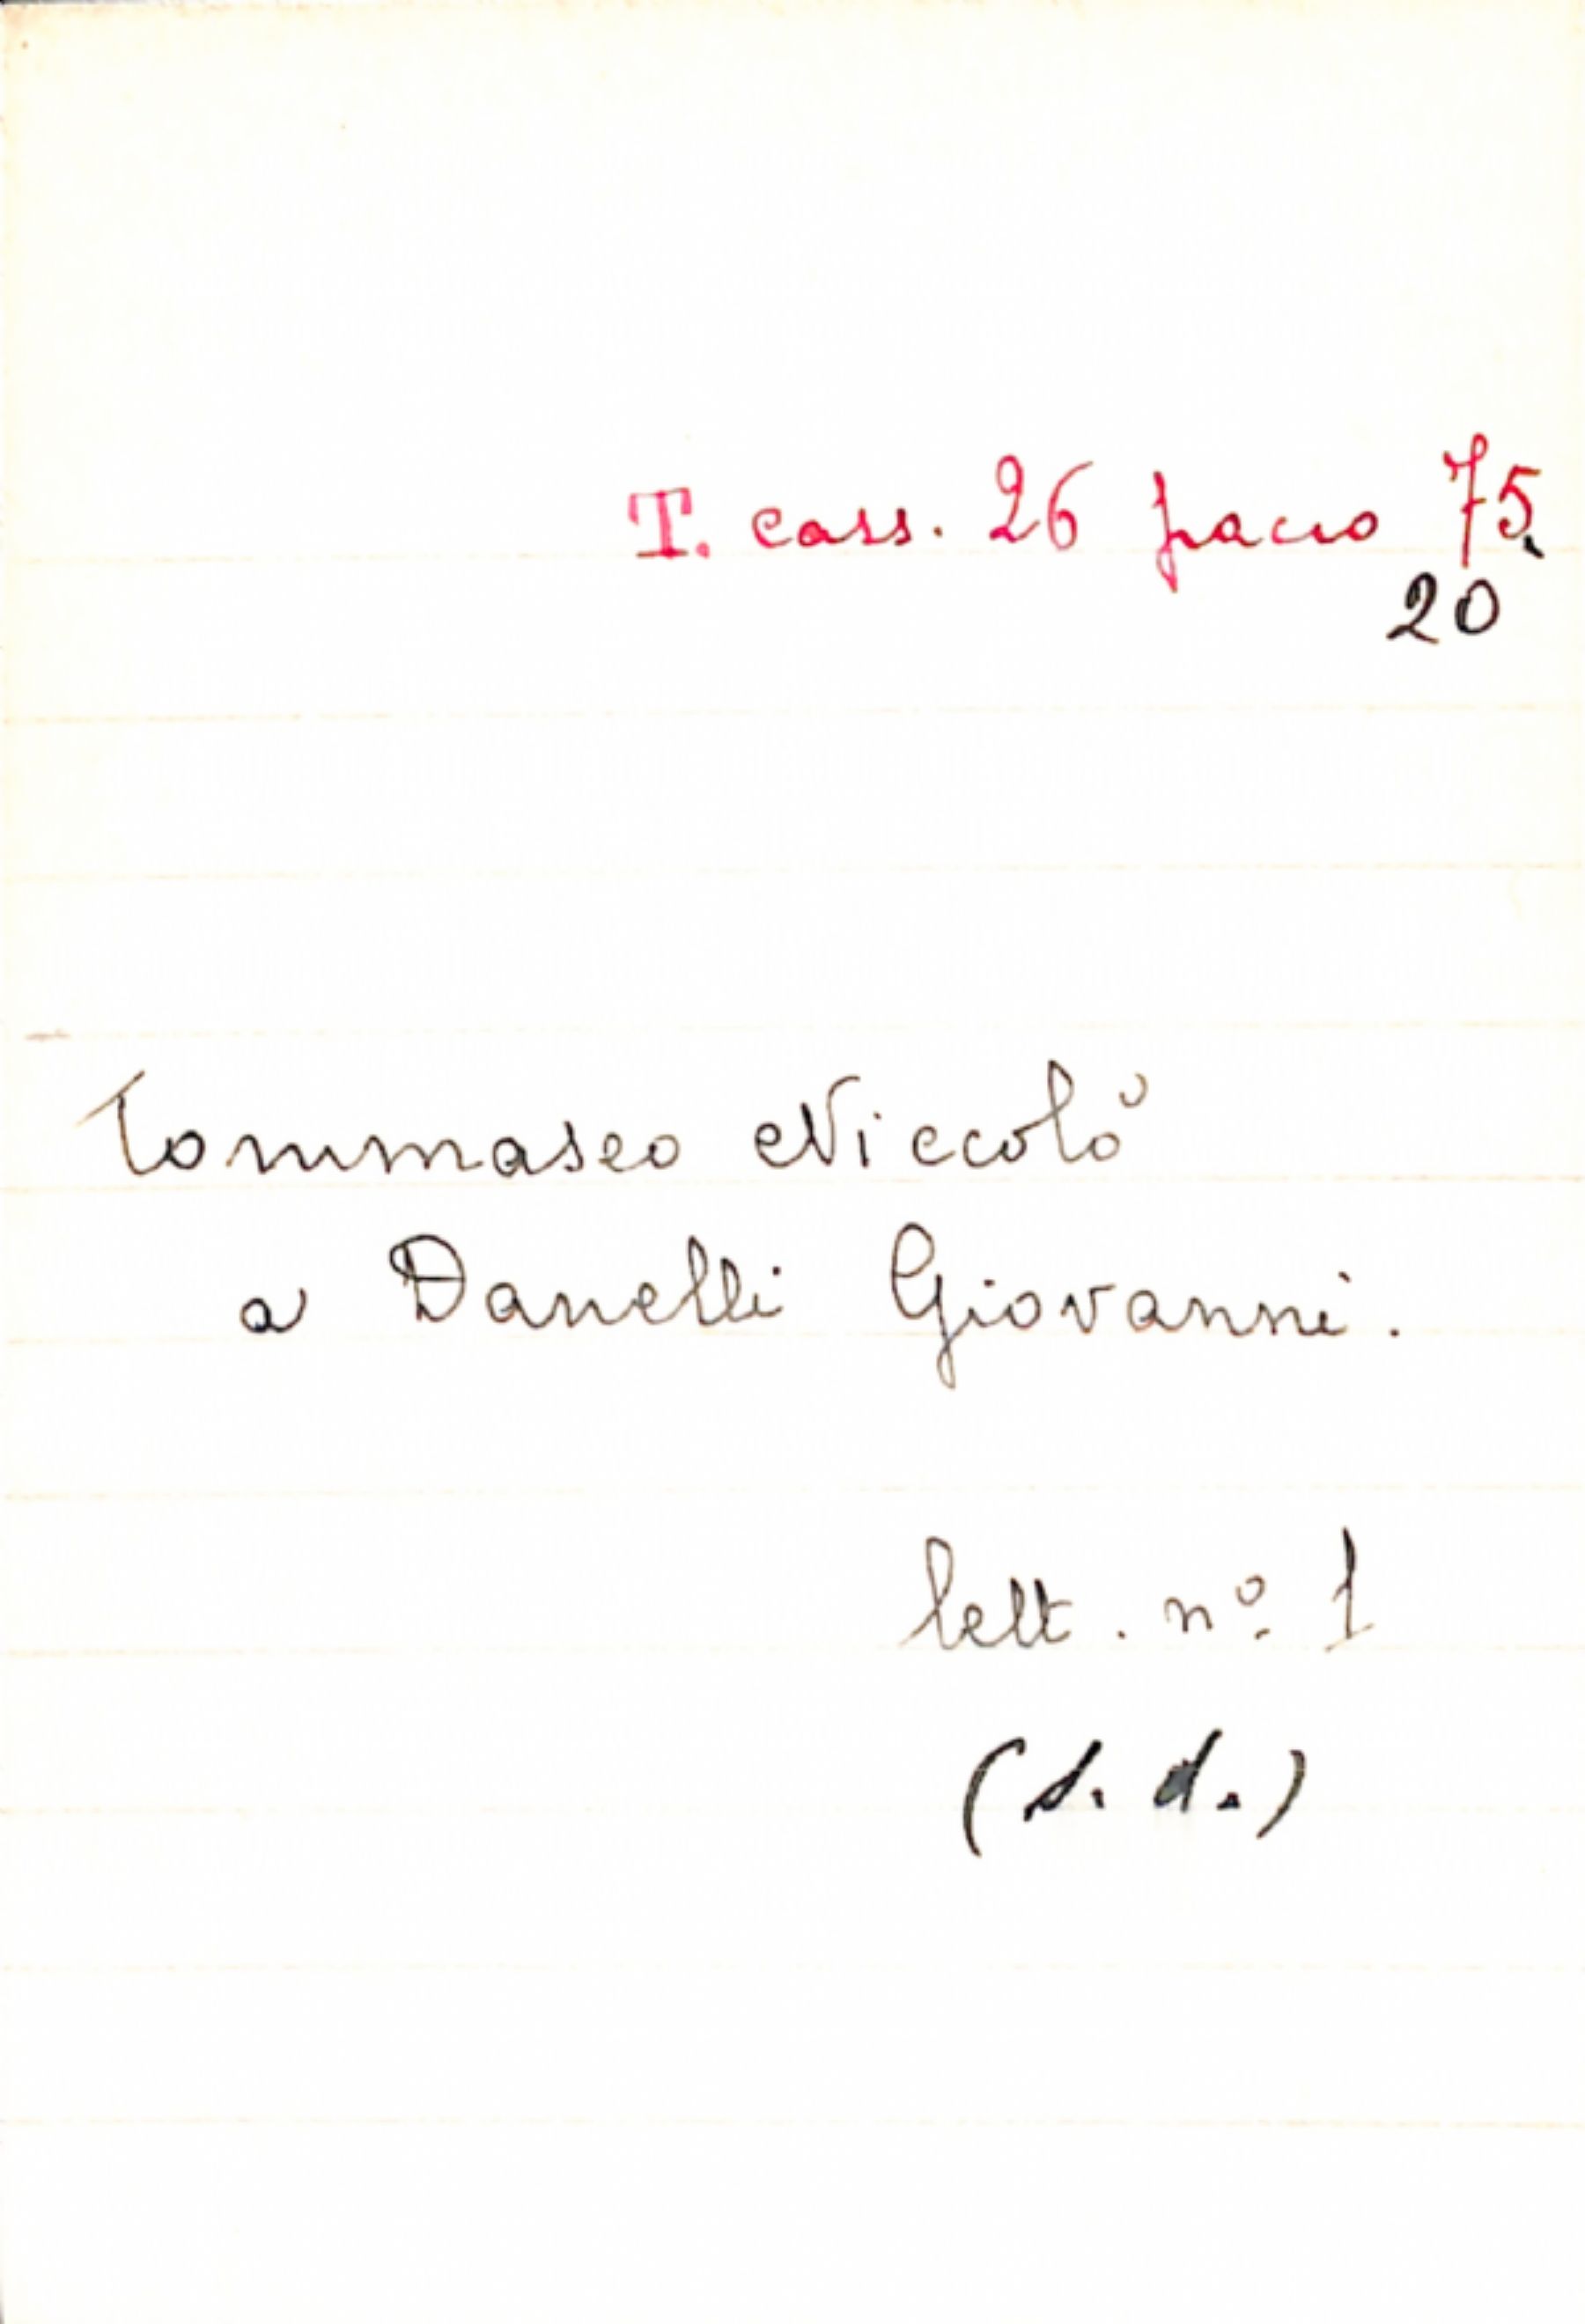 T. cass. 26 pacco 75.
20
Tommaseo Niccolò
a Danelli Giovanni.
lett. nº 1
(s. d.)